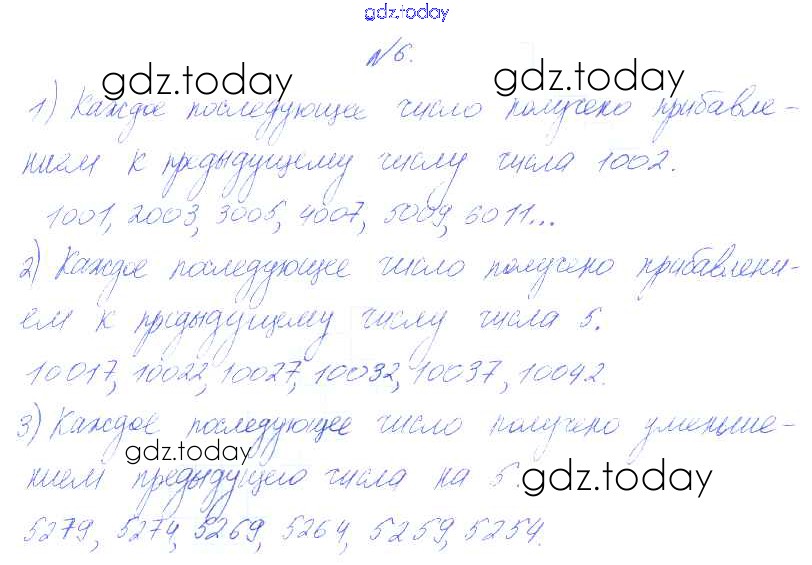 gdz.today
№6.
gdz.today gdz.today
1) Каждое последующее число получено прибавле-
нием к предыдущему числу числа 1002.
1001, 2003, 3005, 4007, 5009, 6011...
2) Каждое последующее число получено прибавлени-
ем к предыдущему числу числа 5.
10017, 10022, 10027, 10032, 10037, 10042.
3) Каждое последующее число получено уменьше-
gdz.today
нием предыдущего числа на 5.
gdz.today
5279, 5274, 5269, 5264, 5259, 5254.